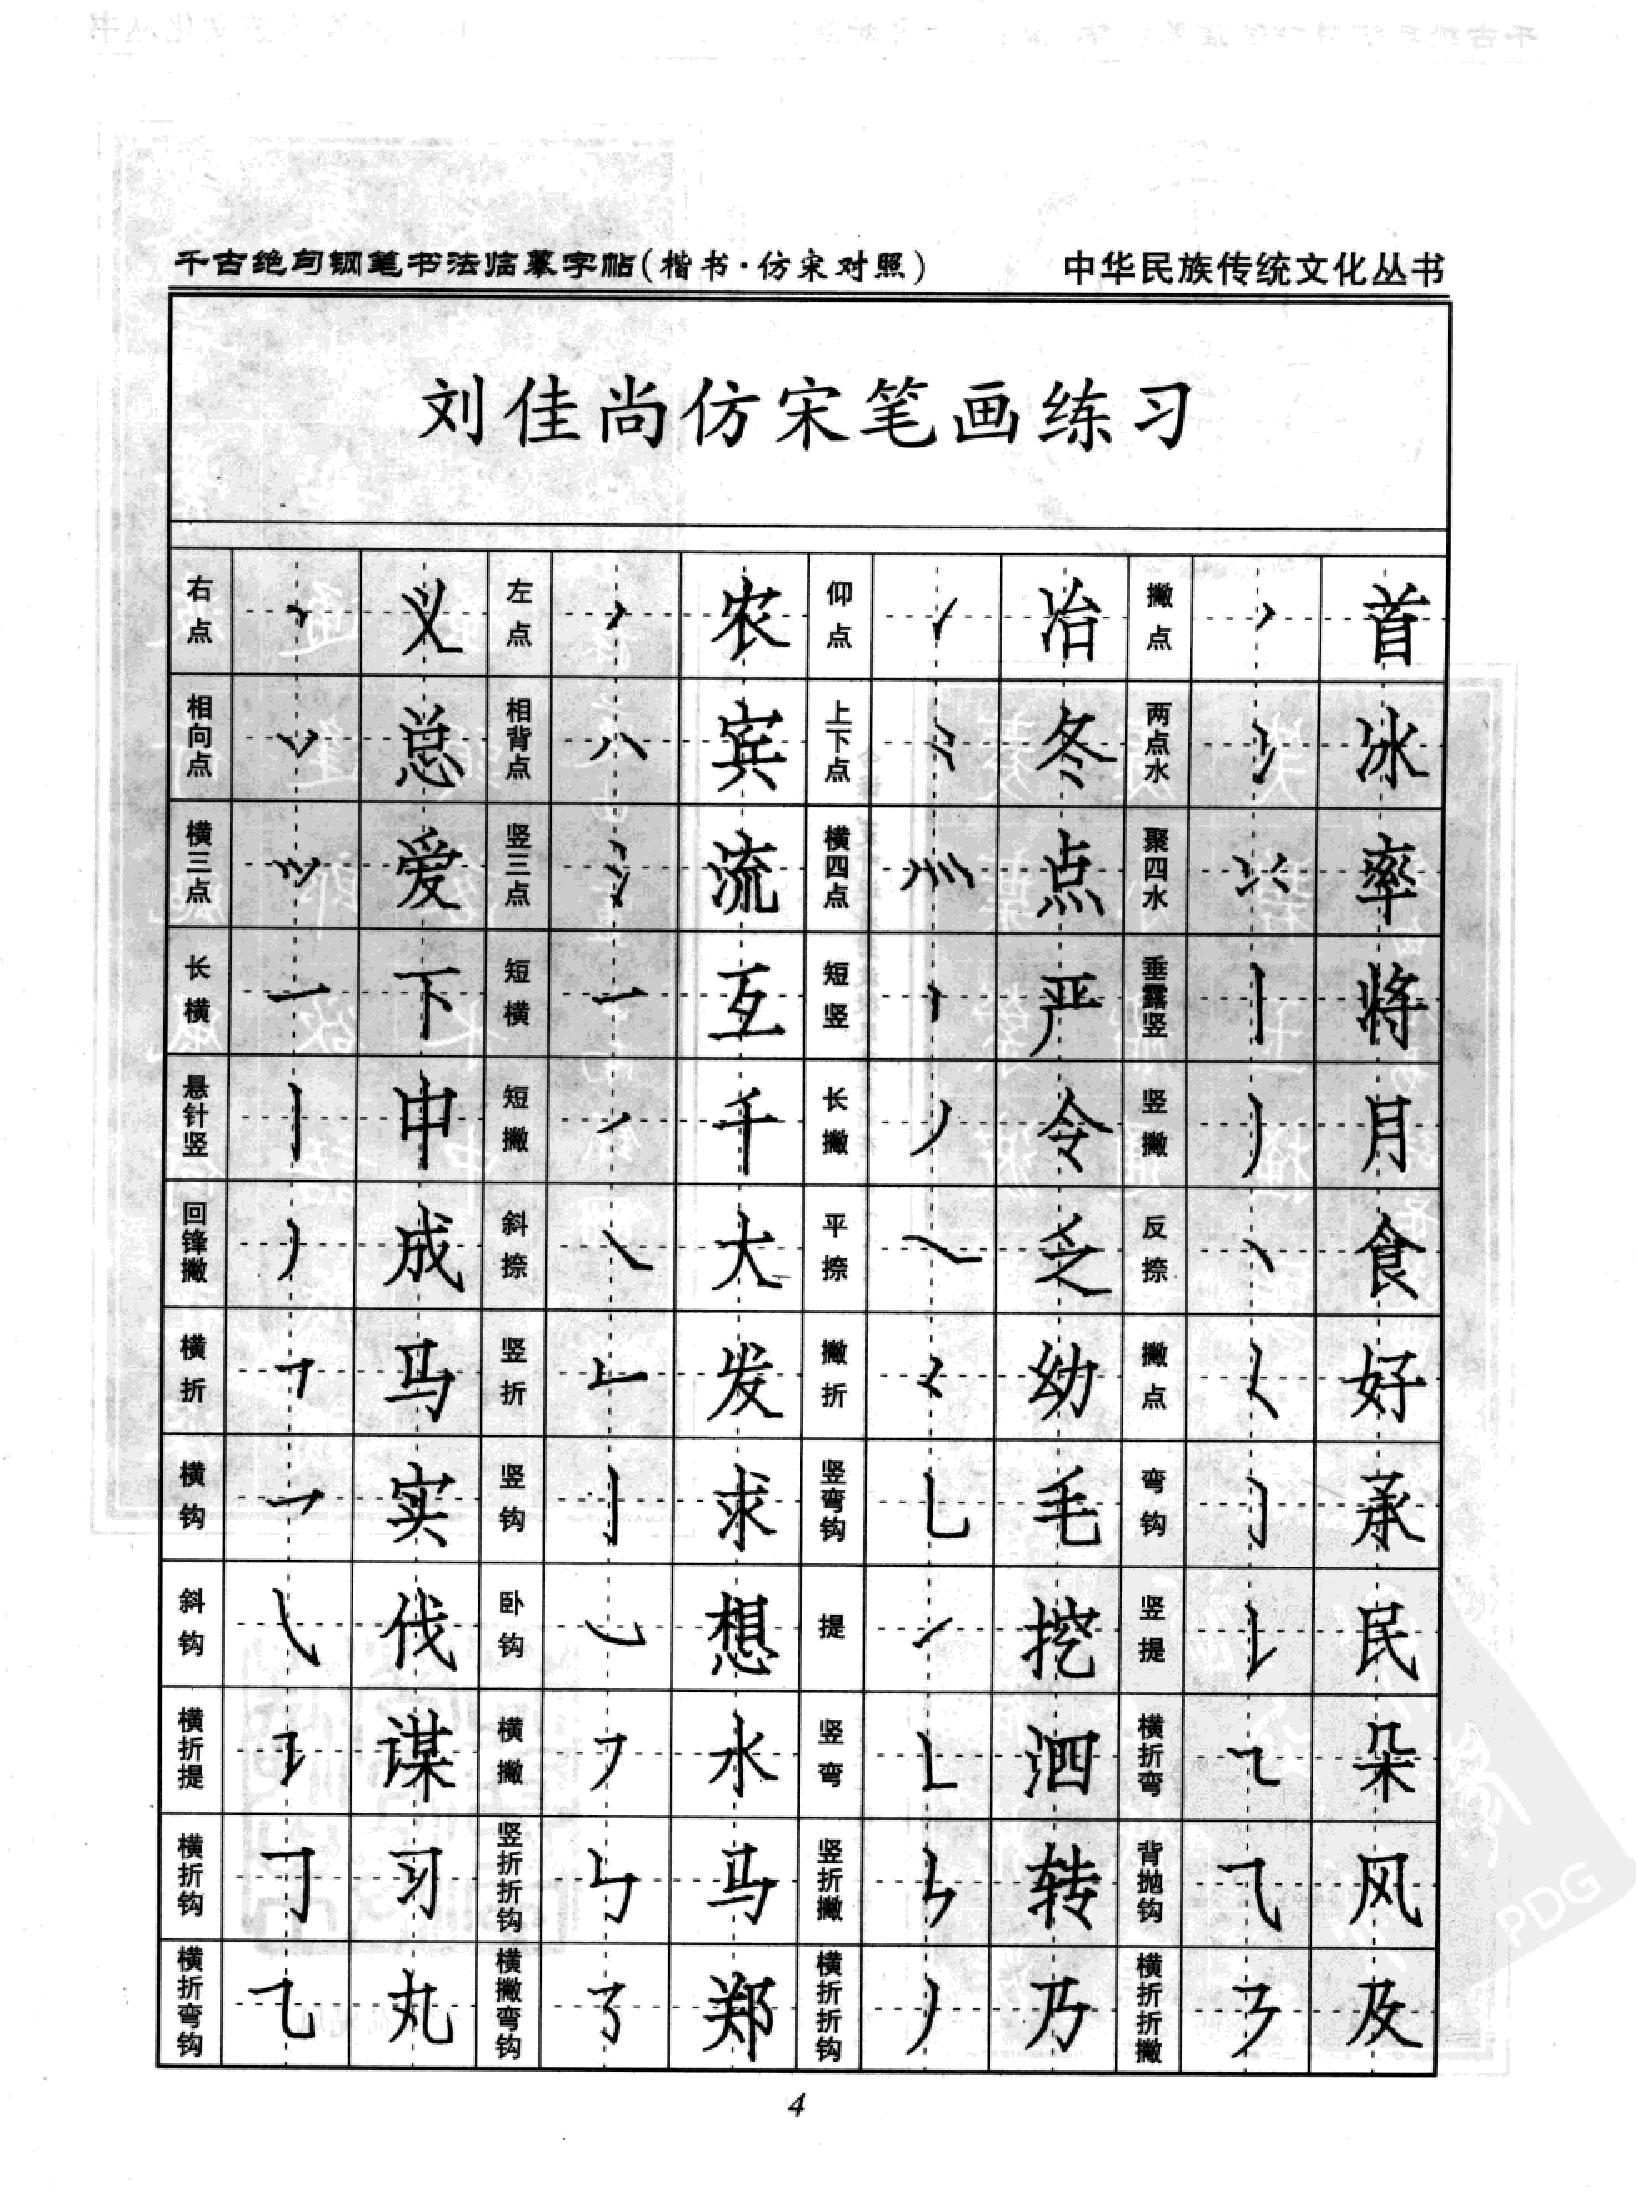 千古绝句钢笔书法临摹字帖(楷书·仿宋对照) 中华民族传统文化丛书
刘佳尚仿宋笔画练习
右点 丶 义 左点 丶 农 仰点 冶 撇点 首
相向点 总 相背点 八 宾 上下点 冬 两点水 冫 冰
横三点 爱 竖三点 氵 流 横四点 灬 点 聚四水 率
长横 一 下 短横 一 互 短竖 丨 严 垂露竖 丨 将
悬针竖 丨 中 短撇 丿 千 长撇 丿 令 竖撇 丿 月
回锋撇 丿 成 斜捺 ㇏ 大 平捺 ㇏ 乏 反捺 丶 食
横折 ㇕ 马 竖折 ㇗ 发 撇折 ㇜ 幼 撇点 ㇛ 好
横钩 ㇖ 实 竖钩 亅 求 竖弯钩 乚 毛 弯钩 ㇁ 承
斜钩 ㇂ 伐 卧钩 ㇃ 想 提 ㇀ 挖 竖提 ㇙ 民
横折提 ㇊ 谋 横撇 ㇇ 水 竖弯 ㇄ 泗 横折弯 ㇍ 朵
横折钩 ㇆ 习 竖折折钩 ㇉ 马 竖折撇 ㇞ 转 背抛钩 ⺄ 风
横折弯钩 ㇈ 丸 横撇弯钩 ㇌ 郑 横折折钩 丿 乃 横折折撇 ㇋ 及
4
PDG